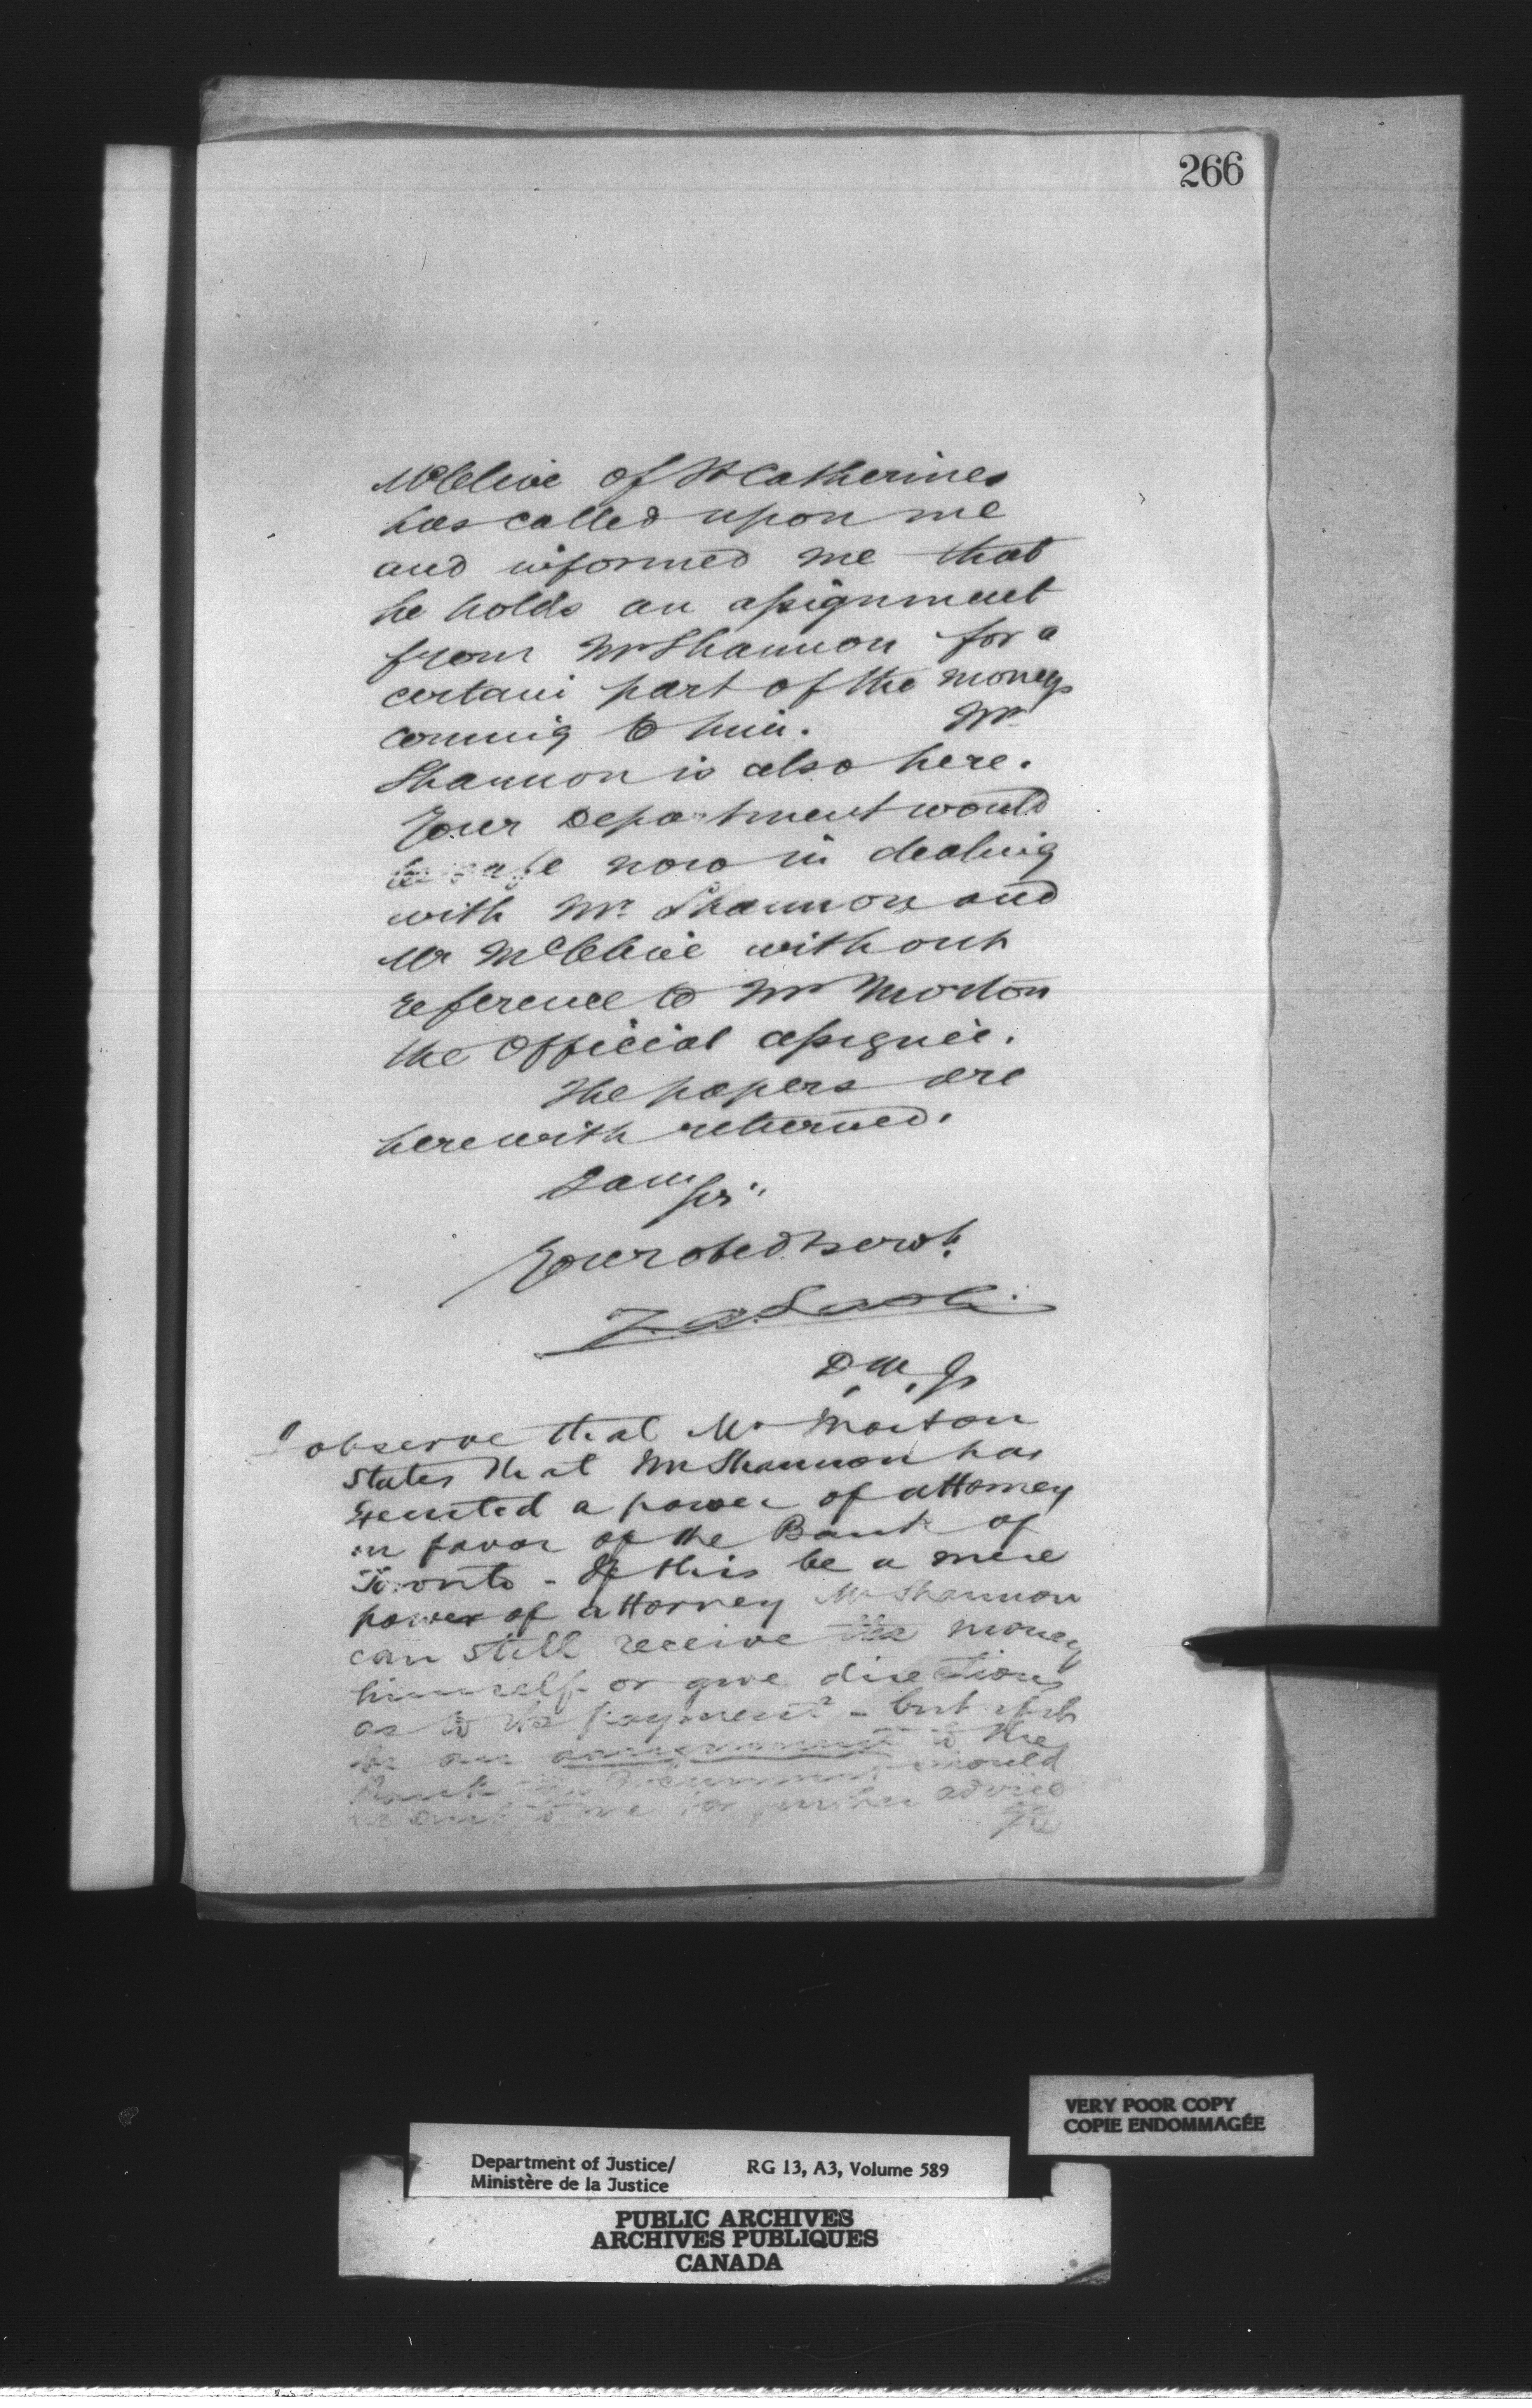 266
McClive of St Catherines
has called upon me
and informed me that
he holds an assignment
from Mr Shannon for a
certain part of the moneys
coming to him. Mr
Shannon is also here.
Your Department would
be safe now in dealing
with Mr Shannon and
Mr McClive without
reference to Mr Morton
the Official assignee.
The papers are
herewith returned.
I am Sir
Your obedt servt.
Z A Lash
D.M.J.
I observe that Mr Morton
states that Mr Shannon has
executed a power of attorney
in favor of the Bank of
Toronto - If this be a mere
power of attorney Mr Shannon
can still receive the money
himself or give directions
as to its payment - but if it
be an assignment to the
Bank the Document should
be sent to me for further advice
VERY POOR COPY
COPIE ENDOMMAGÉE
Department of Justice/ RG 13, A3, Volume 589
Ministère de la Justice
PUBLIC ARCHIVES
ARCHIVES PUBLIQUES
CANADA